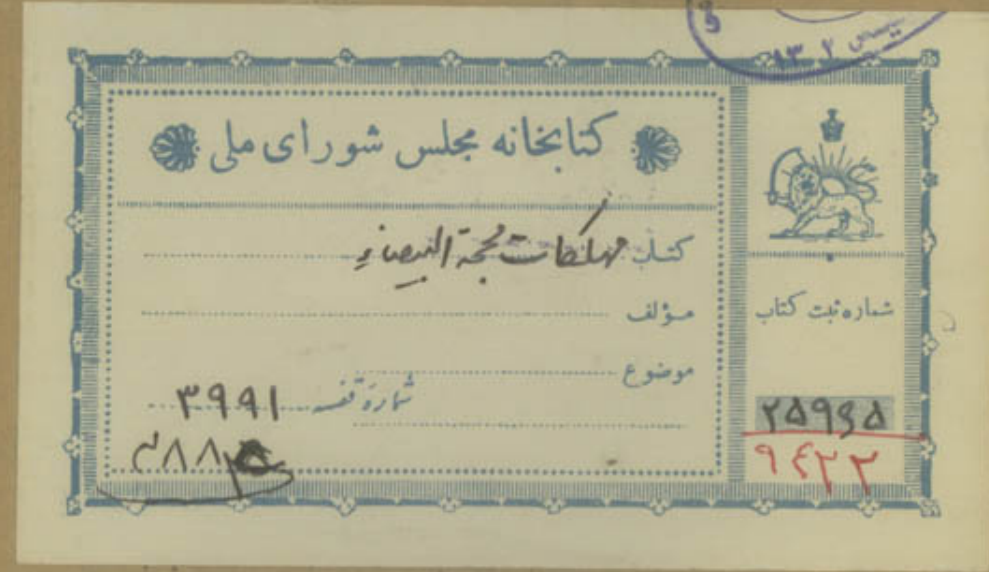 ۱۳۰۲
کتابخانه مجلس شورای ملی
کتاب مهلکات محجة البیضاء
مؤلف
موضوع
شماره قفسه ۳۹۹۱
شماره ثبت کتاب
۲۵۹۶۵
۹۴۲۲